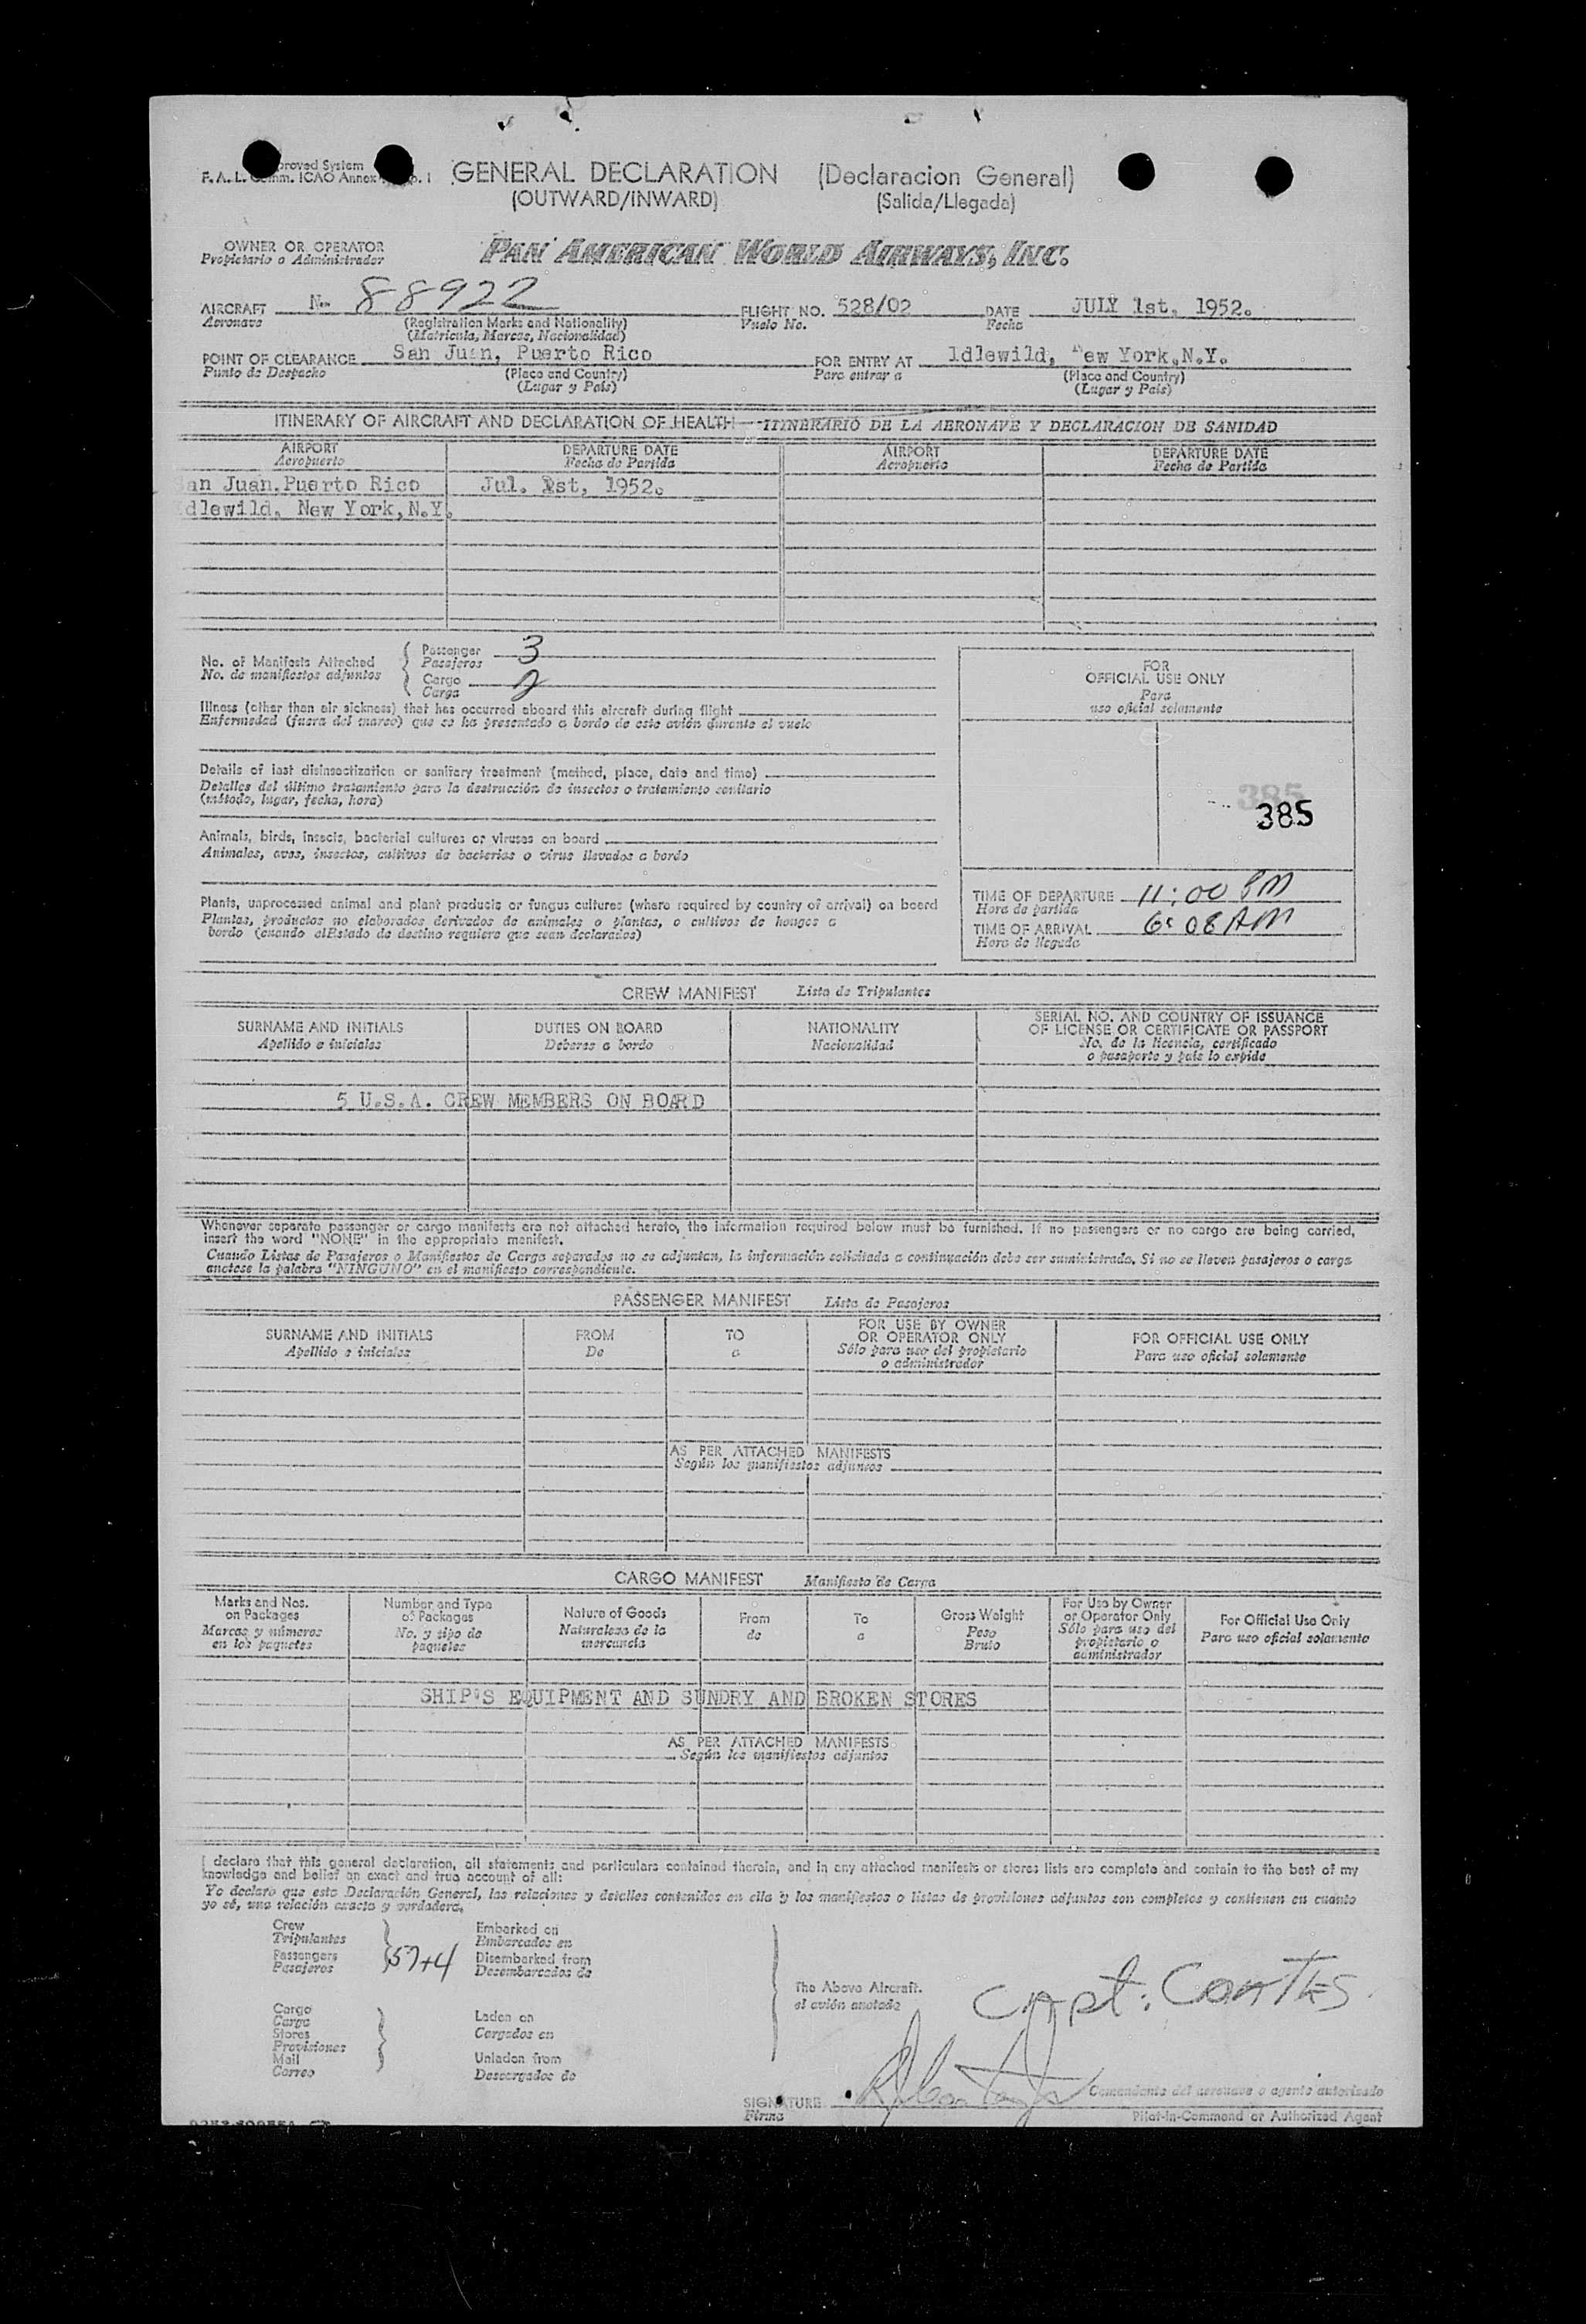 proved System
F. A. L. Comm. ICAO Annex
GENERAL DECLARATION (Declaracion General)
(OUTWARD/INWARD) (Salida/Llegada)
OWNER OR OPERATOR
Propietario o Administrador
PAN AMERICAN WORLD AIRWAYS, INC.
AIRCRAFT N- 88922 FLIGHT NO. 528/02 DATE JULY 1st, 1952.
Aeronave (Registration Marks and Nationality) Vuelo No. Fecha
(Matricula, Marcas, Nacionalidad)
POINT OF CLEARANCE San Juan, Puerto Rico FOR ENTRY AT Idlewild, New York,N.Y.
Punto de Despacho (Place and Country) Para entrar a (Place and Country)
(Lugar y País) (Lugar y País)
ITINERARY OF AIRCRAFT AND DECLARATION OF HEALTH—ITINERARIO DE LA AERONAVE Y DECLARACION DE SANIDAD
AIRPORT DEPARTURE DATE AIRPORT DEPARTURE DATE
Aeropuerto Fecha de Partida Aeropuerto Fecha de Partida
an Juan,Puerto Rico Jul. 1st, 1952.
dlewild, New York,N.Y.
No. of Manifests Attached
No. de manifiestos adjuntos
Passenger 3
Pasajeros
Cargo 2
Carga
FOR
OFFICIAL USE ONLY
Para
uso oficial solamente
Illness (other than air sickness) that has occurred aboard this aircraft during flight
Enfermedad (fuera del mareo) que se ha presentado a bordo de este avión durante el vuelo
Details of last disinsectization or sanitary treatment (method, place, date and time)
Detalles del último tratamiento para la destrucción de insectos o tratamiento sanitario
(método, lugar, fecha, hora)
385
385
Animals, birds, insects, bacterial cultures or viruses on board
Animales, aves, insectos, cultivos de bacterias o virus llevados a bordo
Plants, unprocessed animal and plant products or fungus cultures (where required by country of arrival) on board
Plantas, productos no elaborados derivados de animales o plantas, o cultivos de hongos a
bordo (cuando elEstado de destino requiere que sean declarados)
TIME OF DEPARTURE 11:00 PM
Hora de partida
TIME OF ARRIVAL 6:08 AM
Hora de llegada
CREW MANIFEST Lista de Tripulantes
SURNAME AND INITIALS DUTIES ON BOARD NATIONALITY SERIAL NO. AND COUNTRY OF ISSUANCE
OF LICENSE OR CERTIFICATE OR PASSPORT
Apellido e iniciales Deberes a bordo Nacionalidad No. de la licencia, certificado
o pasaporte y país lo expide
5 U.S.A. CREW MEMBERS ON BOARD
Whenever separate passenger or cargo manifests are not attached hereto, the information required below must be furnished. If no passengers or no cargo are being carried,
insert the word "NONE" in the appropriate manifest.
Cuando Listas de Pasajeros o Manifiestos de Carga separados no se adjuntan, la información solicitada a continuación debe ser suministrada. Si no se lleven pasajeros o carga
anotese la palabra "NINGUNO" en el manifiesto correspondiente.
PASSENGER MANIFEST Lista de Pasajeros
SURNAME AND INITIALS FROM TO FOR USE BY OWNER
OR OPERATOR ONLY FOR OFFICIAL USE ONLY
Apellido e iniciales De a Sólo para uso del propietario
o administrador Para uso oficial solamente
AS PER ATTACHED MANIFESTS
Según los manifiestos adjuntos
CARGO MANIFEST Manifiesto de Carga
Marks and Nos.
on Packages
Marcas y números
en los paquetes
Number and Type
of Packages
No. y tipo de
paquetes
Nature of Goods
Naturaleza de la
mercancía
From
de
To
a
Gross Weight
Peso
Bruto
For Use by Owner
or Operator Only
Sólo para uso del
propietario o
administrador
For Official Use Only
Para uso oficial solamente
SHIP'S EQUIPMENT AND SUNDRY AND BROKEN STORES
AS PER ATTACHED MANIFESTS
Según los manifiestos adjuntos
I declare that this general declaration, all statements and particulars contained therein, and in any attached manifests or stores lists are complete and contain to the best of my
knowledge and belief an exact and true account of all:
Yo declaro que esta Declaración General, las relaciones y detalles contenidos en ella y los manifiestos o listas de provisiones adjuntos son completos y contienen en cuanto
yo sé, una relación exacta y verdadera.
Crew
Tripulantes
Passengers
Pasajeros
57+4
Embarked on
Embarcados en
Disembarked from
Desembarcados de
The Above Aircraft.
el avión anotado
Capt. Coates
Cargo
Carga
Stores
Provisiones
Mail
Correo
Laden on
Cargados en
Unladen from
Descargados de
SIGNATURE
Firma
Comandante del aeronave o agente autorizado
Pilot-in-Command or Authorized Agent